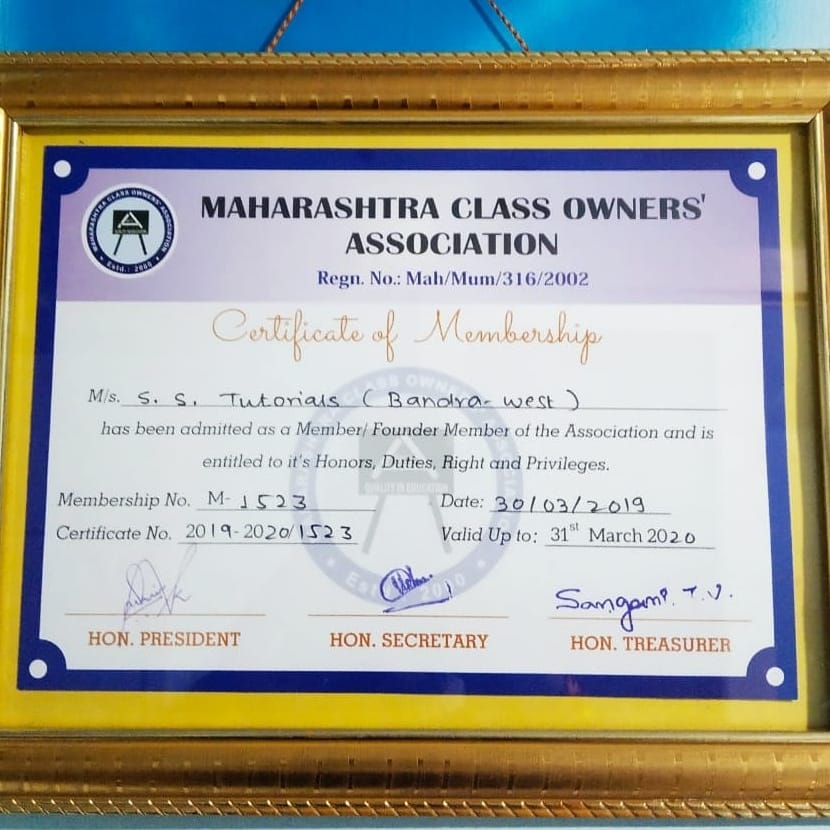 MAHARASHTRA CLASS OWNERS' ASSOCIATION
Estd.: 2000
MAHARASHTRA CLASS OWNERS'
ASSOCIATION
Regn. No.: Mah/Mum/316/2002
Certificate of Membership
M/s. S. S. Tutorials (Bandra-west)
has been admitted as a Member/ Founder Member of the Association and is
entitled to it's Honors, Duties, Right and Privileges.
QUALITY IN EDUCATION
Membership No. M-1523 Date: 30/03/2019
Certificate No. 2019-2020/1523 Valid Up to: 31st March 2020
Sangami. T.V.
HON. PRESIDENT HON. SECRETARY HON. TREASURER